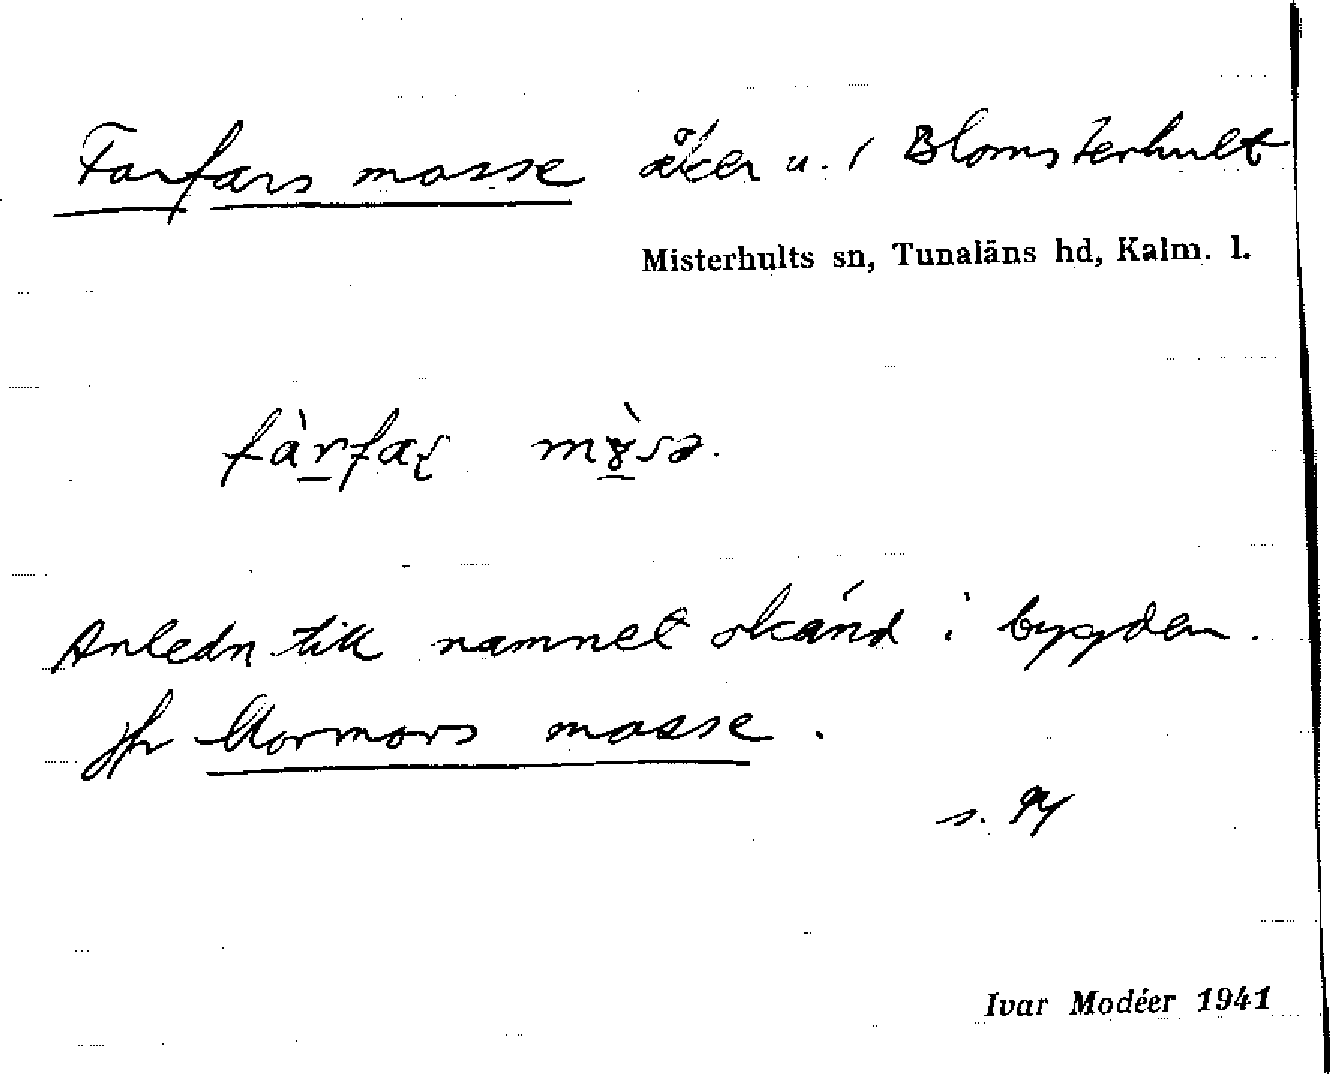 Farfars mosse åker u. 1 Blomsterhult
Misterhults sn, Tunaläns hd, Kalm. l.
fàrfaʂ
Anledn till namnet okänd i bygden.
Jfr Mormors mosse.
s.
Ivar Modéer 1941